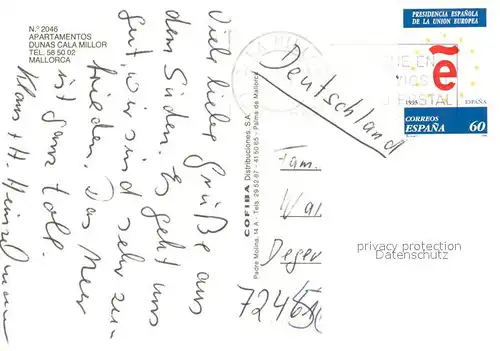 N.º 2046
APARTAMENTOS
DUNAS CALA MILLOR
TEL. 58 50 02
MALLORCA
Viele liebe Grüße aus
dem Süden. Es geht uns
gut, wir sind sehr zu-
frieden. Das Meer
ist ganz toll.
Klaus + H.
COFIBA Distribuciones, S.A.
Padre Molina, 14 A - Tels. 29 52 87 - 41 50 85 - Palma de Mallorca
PRESIDENCIA ESPAÑOLA
DE LA UNION EUROPEA
ẽ
1995 ESPAÑA
CORREOS
ESPAÑA 60
POSTAL
Deutschland
Fam.
Wa
Deger
privacy protection
Datenschutz